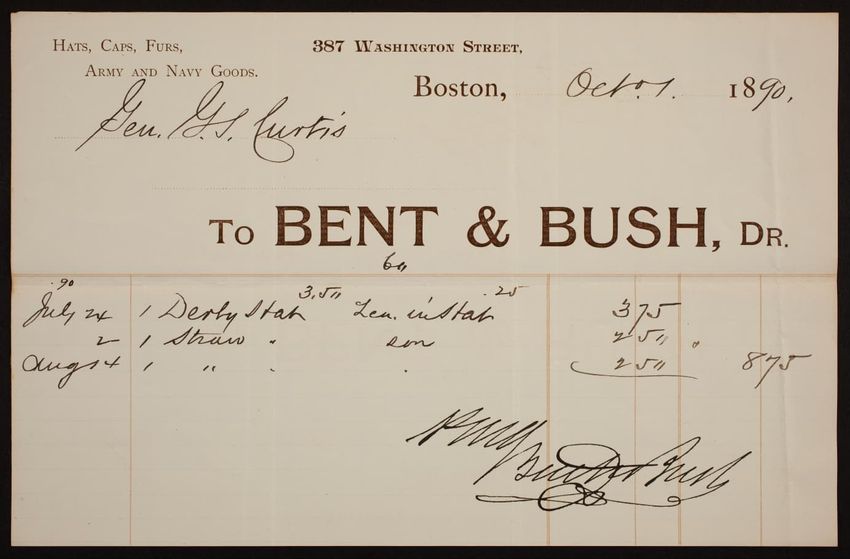 HATS, CAPS, FURS,
ARMY AND NAVY GOODS.
387 WASHINGTON STREET,
Boston, Oct. 1. 1890.
Gen. G. S. Curtis
TO BENT & BUSH, DR.
6"
90
July 24 1 Derby Hat 3.5" in Hat .25 3 75
2 1 Straw " son 2 5"
Aug 14 1 " " 2 5" 8 75
Bent & Bush